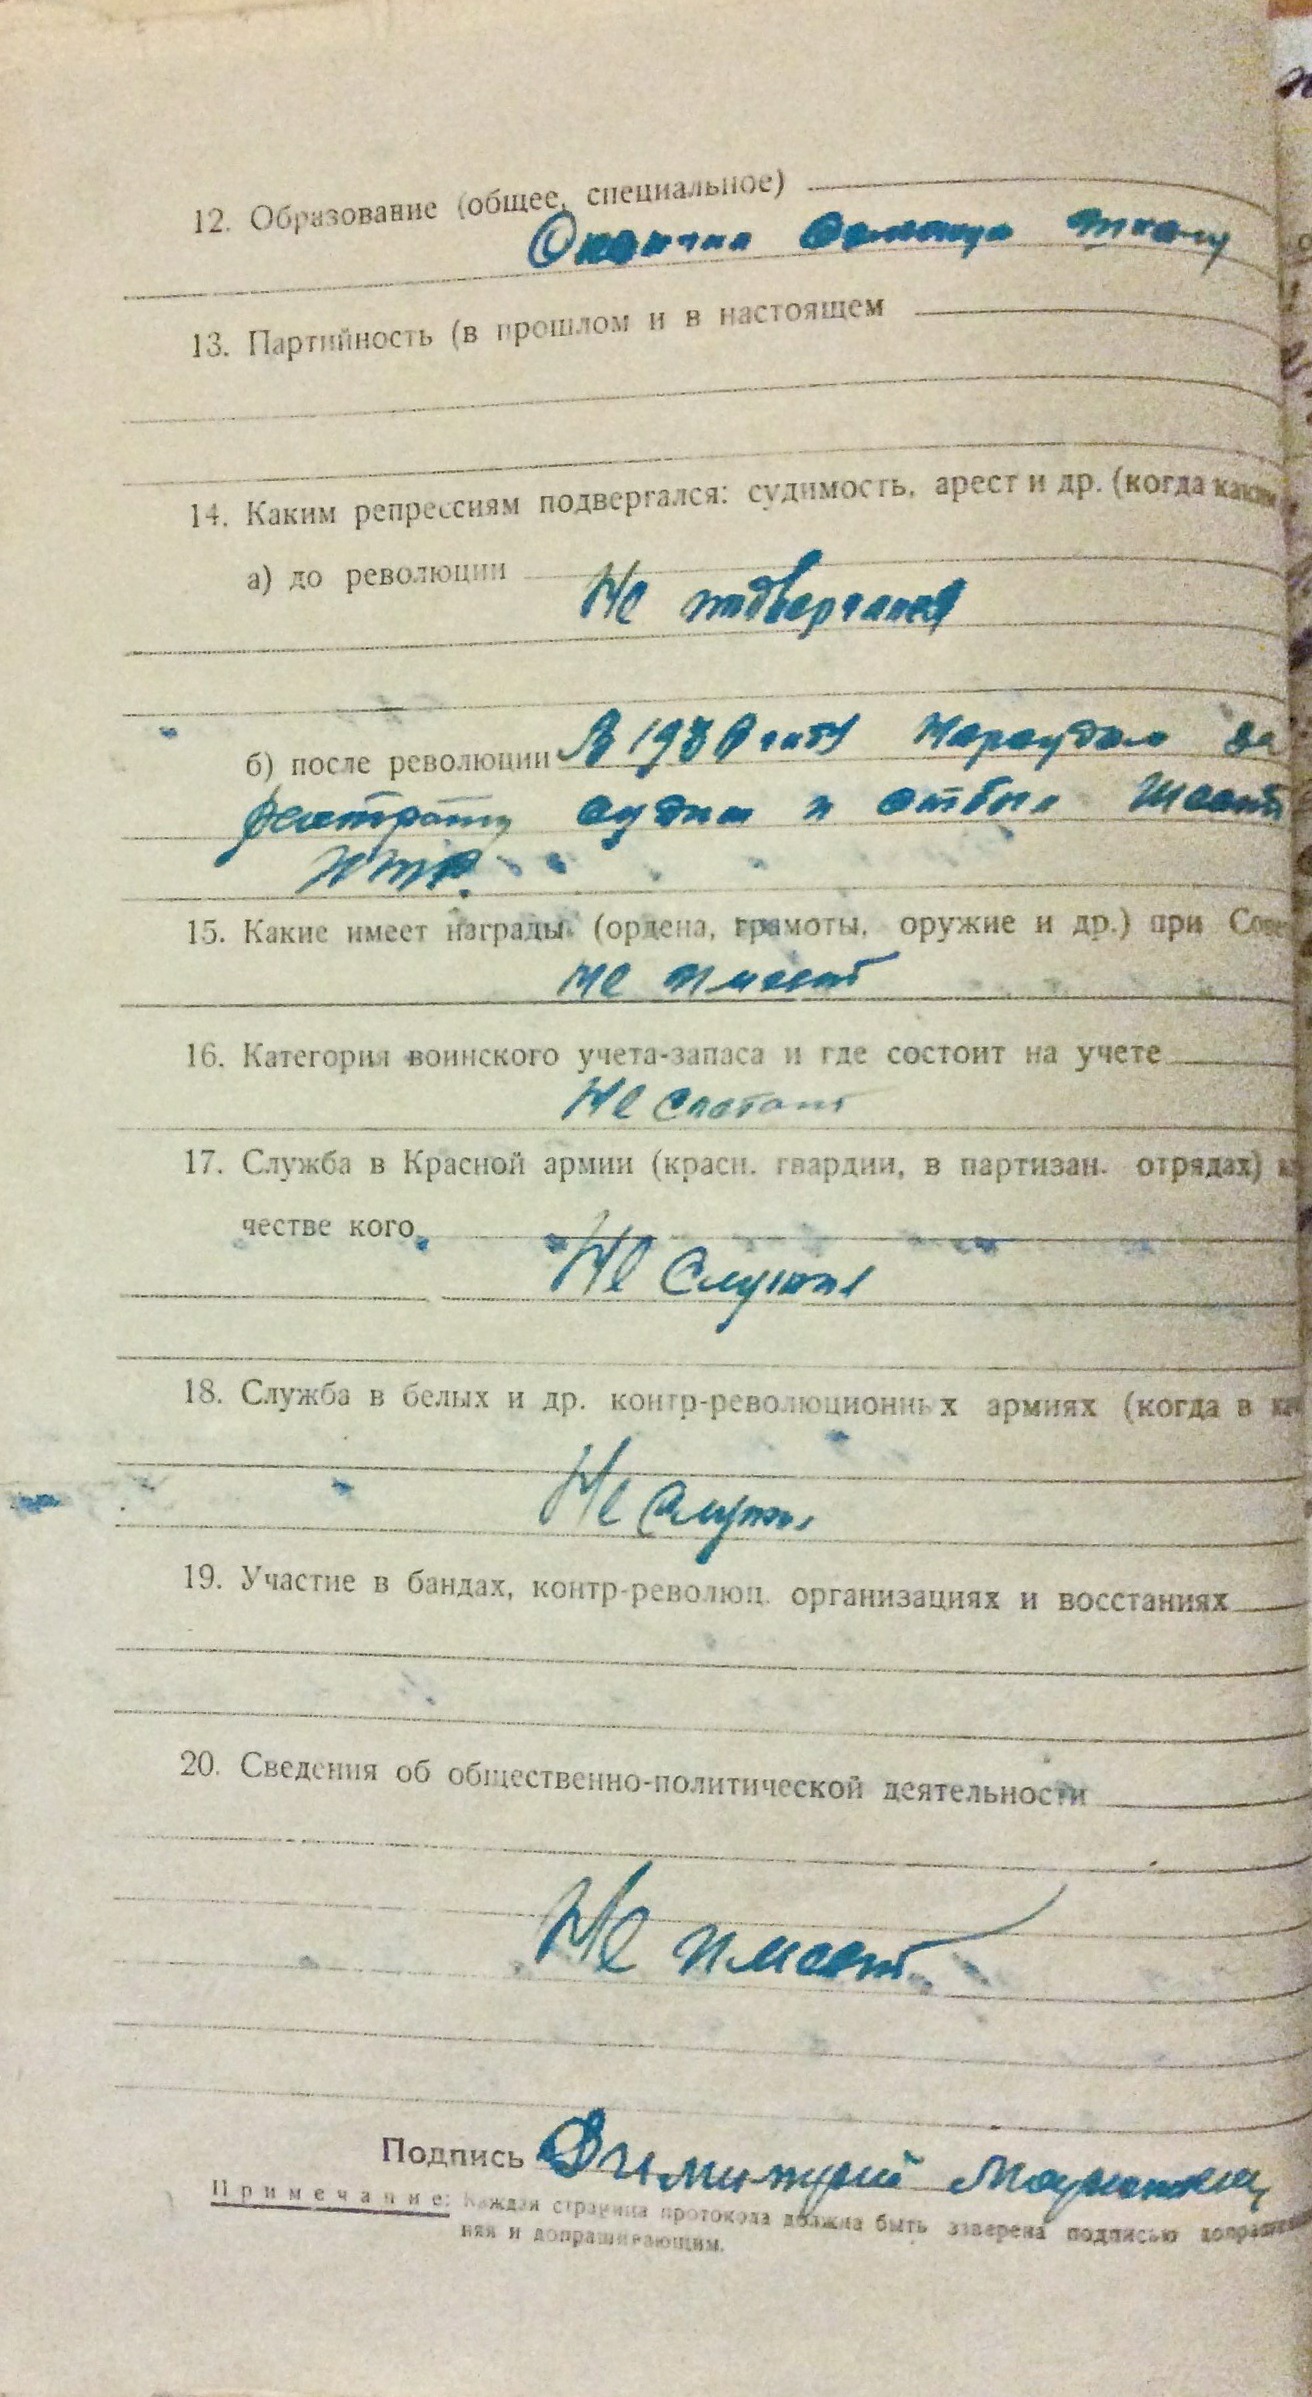 12. Образование (общее, специальное)
Окончил сельскую школу
13. Партийность (в прошлом и в настоящем
14. Каким репрессиям подвергался: судимость, арест и др. (когда каким
а) до революции Не подвергался
б) после революции В 193 году Нарсудом за
растрату судим и отбыл шесть
ИТР.
15. Какие имеет награды (ордена, грамоты, оружие и др.) при Сове
не имеет
16. Категория воинского учета-запаса и где состоит на учете
Не состоит
17. Служба в Красной армии (красн. гвардии, в партизан. отрядах)
честве кого
Не служил
18. Служба в белых и др. контр-революционных армиях (когда в
Не служил
19. Участие в бандах, контр-революц. организациях и восстаниях
20. Сведения об общественно-политической деятельности
Не имеет
Подпись Димитрий
Примечание: Каждая страница протокола должна быть заверена подписью
няя и допрашивающим.